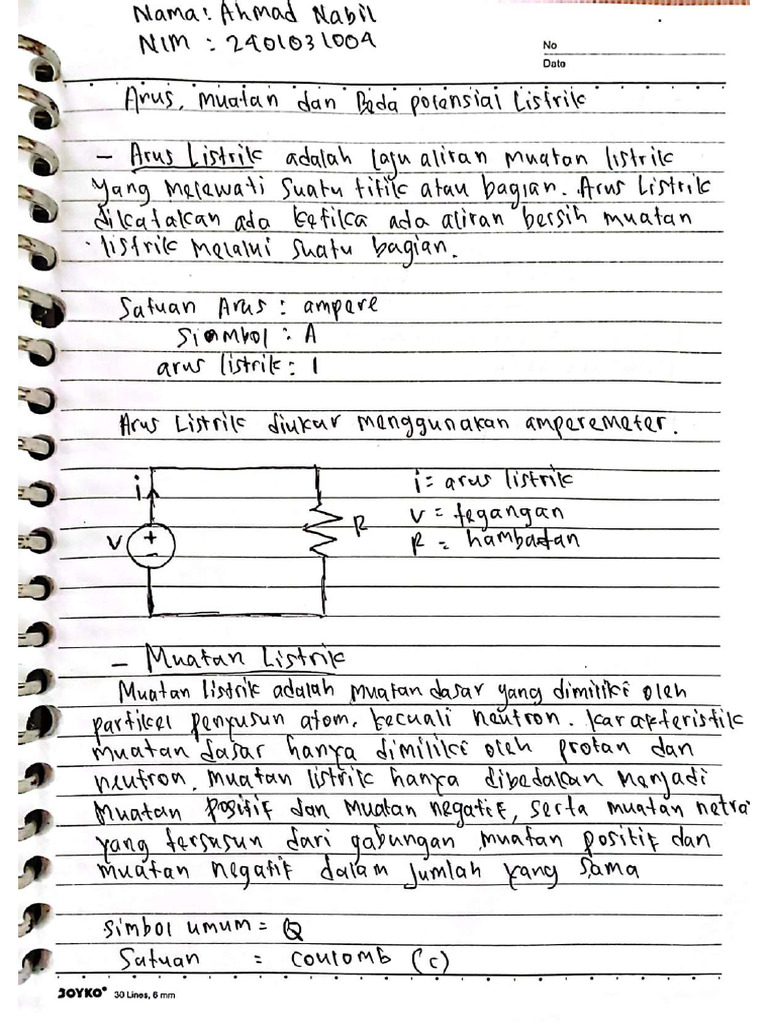 Nama: Ahmad Nabil
NIM : 2401031004
No
Date
Arus, Muatan dan Beda potensial Listrik
- Arus Listrik adalah laju aliran muatan listrik
yang melewati suatu titik atau bagian. Arus Listrik
dikatakan ada ketika ada aliran bersih muatan
listrik melalui suatu bagian.
Satuan Arus : ampere
Simbol : A
arus listrik : I
Arus Listrik diukur menggunakan amperemeter.
i = arus listrik
V = tegangan
R = hambatan
i
V
+
-
R
- Muatan Listrik
Muatan listrik adalah muatan dasar yang dimiliki oleh
partikel penyusun atom, kecuali neutron. karakteristik
muatan dasar hanya dimiliki oleh protan dan
neutron. muatan listrik hanya dibedakan menjadi
muatan positif dan muatan negatif, serta muatan netra
yang tersusun dari gabungan muatan positif dan
muatan negatif dalam jumlah yang sama
simbol umum = Q
Satuan = coulomb (c)
JOYKO 30 Lines, 6 mm